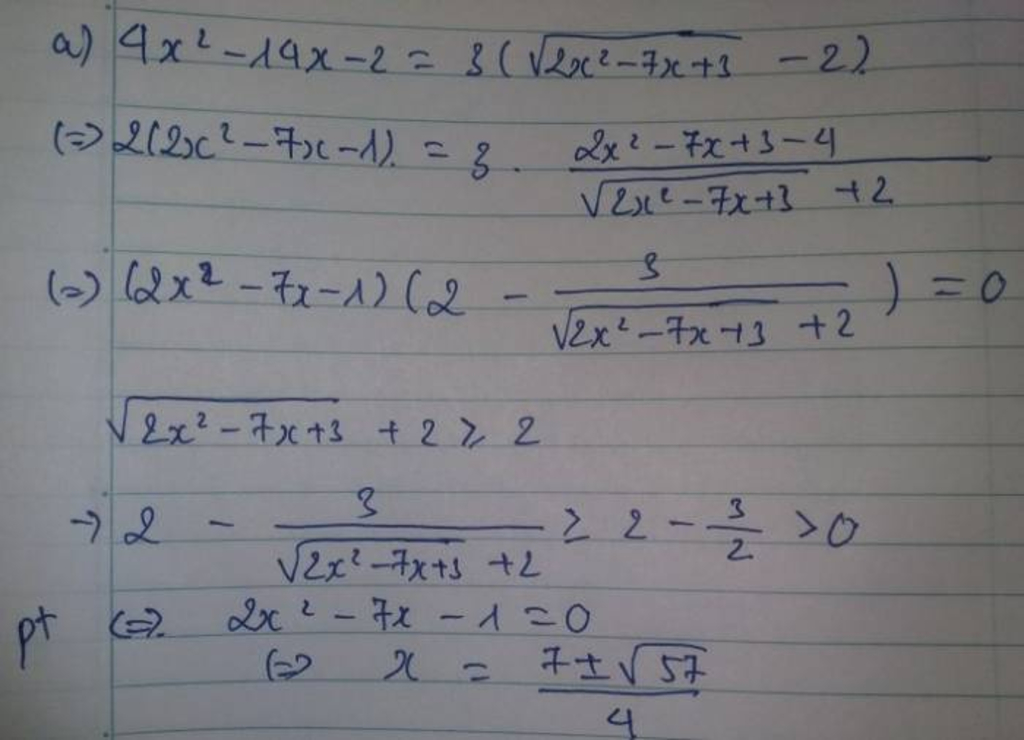 a) 4x² - 14x - 2 = 3(√(2x² - 7x + 3) - 2).
(=) 2(2x² - 7x - 1). = 3 . (2x² - 7x + 3 - 4)/(√(2x² - 7x + 3) + 2)
(=) (2x² - 7x - 1)(2 - 3/(√(2x² - 7x + 3) + 2)) = 0
√(2x² - 7x + 3) + 2 ≥ 2
→ 2 - 3/(√(2x² - 7x + 3) + 2) ≥ 2 - 3/2 > 0
pt (=). 2x² - 7x - 1 = 0
(=) x = (7 ± √57)/4